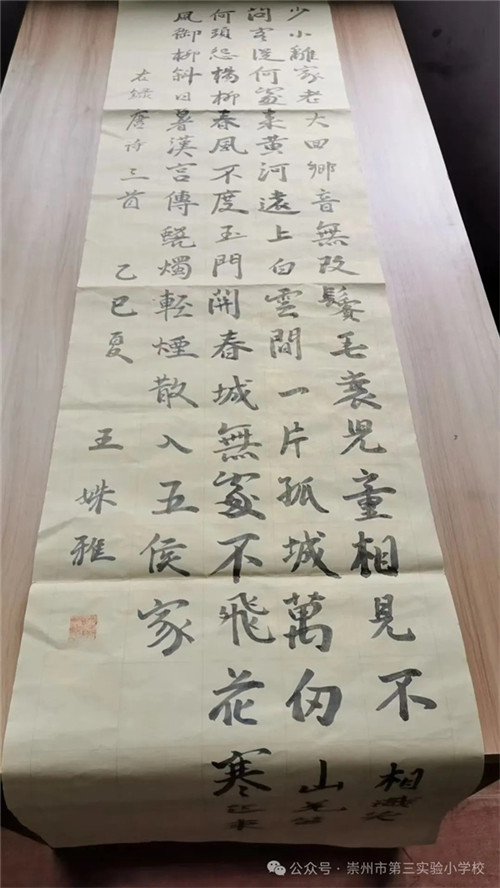 少小離家老大回鄉音無改鬢毛衰兒童相見不相識笑
問客從何處來黃河遠上白雲間一片孤城萬仞山羌笛
何須怨楊柳春風不度玉門關春城無處不飛花寒食東
風御柳斜日暮漢宮傳蠟燭輕煙散入五侯家
右錄唐詩三首 乙巳夏 王姝雅
公众号·崇州市第三实验小学校